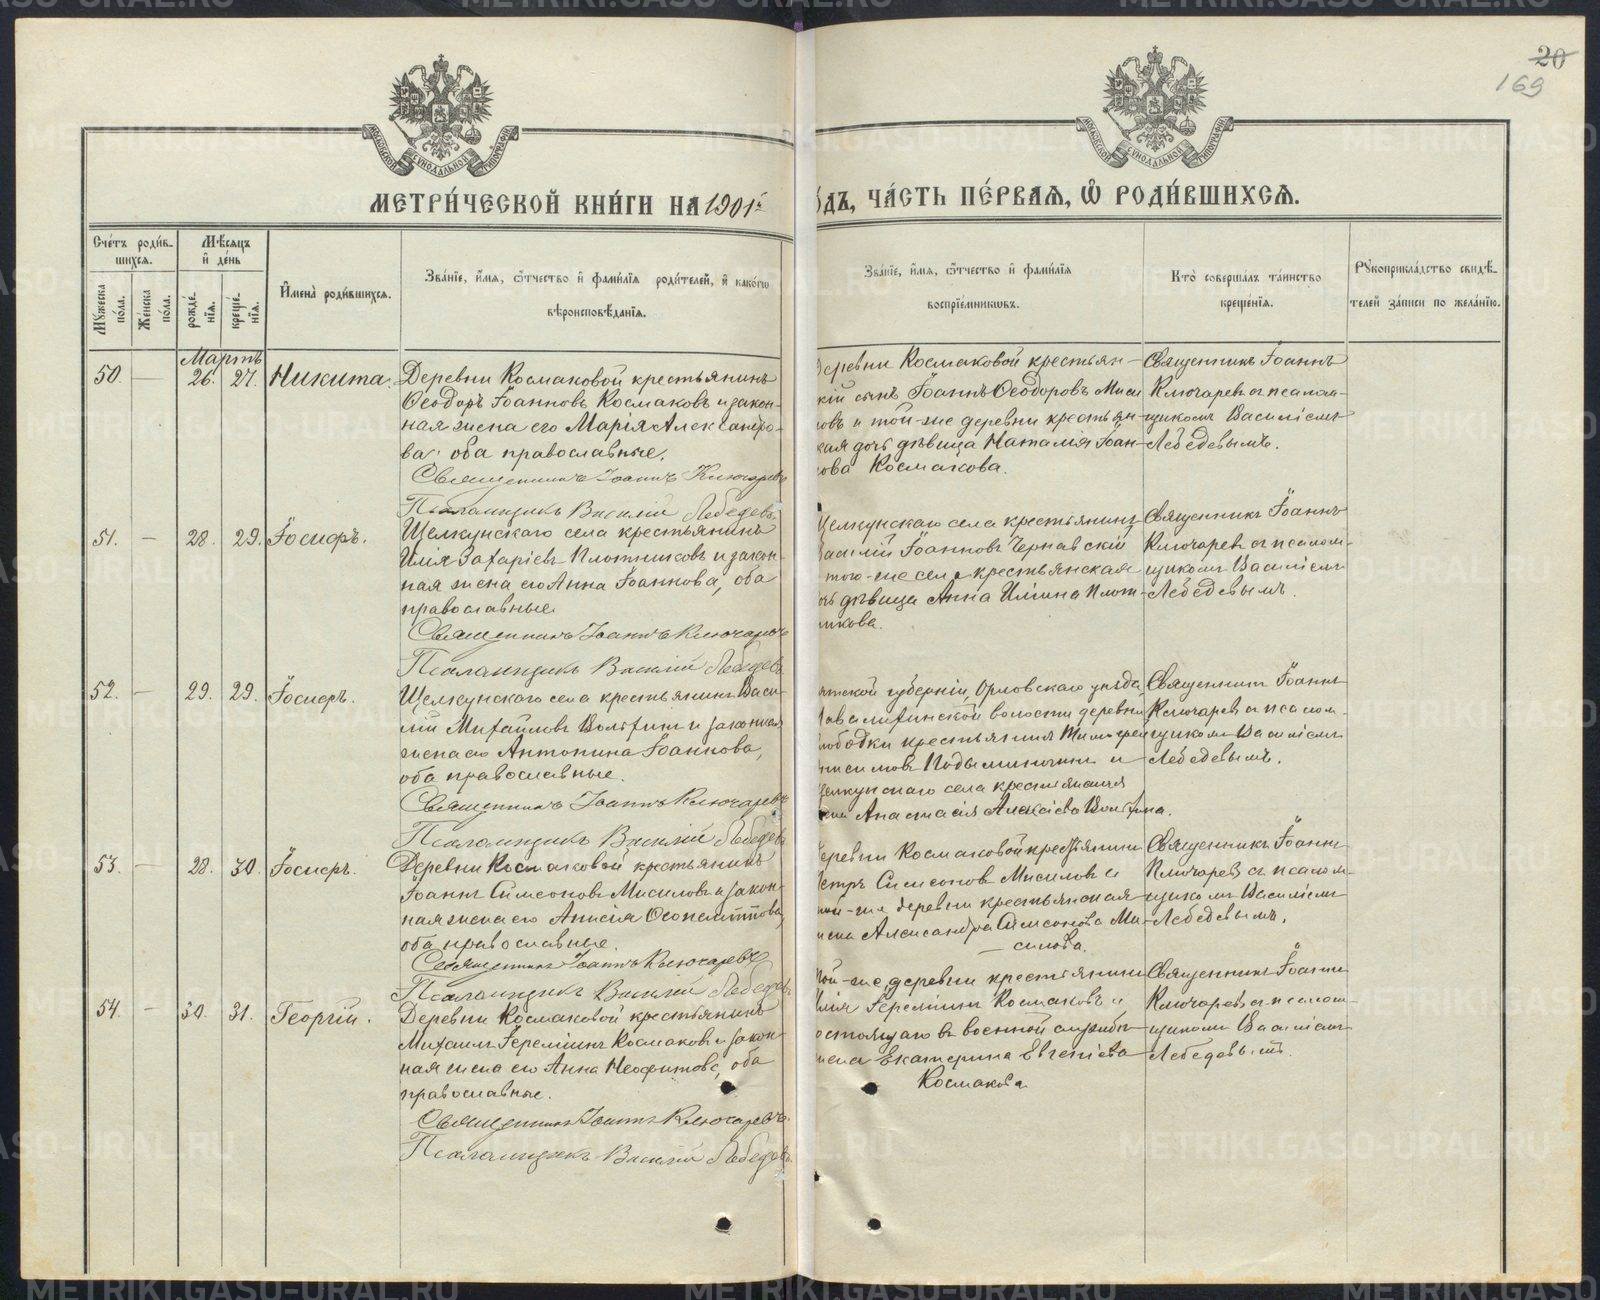 20
169
МЕТРИ́ЧЕСКОЙ КНИ́ГИ НА 1901й
ѻдъ, ЧА́СТЬ ПЕ́РВАЯ, Ѡ РОДИ́ВШИХСЯ.
Сче́тъ роди́в-
шихся.
Мꙋ́жеска по́ла.
Же́нска по́ла.
Мѣ́сяцъ и́ де́нь
рожде́нія.
креще́нія.
И́мена̀ роди́вшихся.
Зва́ніе, и́мя, ѻ́тчество и́ фами́лія роди́телей, и́ како́гѡ
вѣроисповѣ́данія.
Зва́ніе, и́мя, ѻ́тчество и́ фами́лія
воспріе́мниковъ.
Кто̀ соверша́лъ та́инство
креще́нія.
Рꙋкоприкла́дство свидѣ́-
телей за́писи по жела́нію.
Мартъ
50. — 26. 27. Никита.
Деревни Космаковой крестьянинъ
Ѳеодоръ Іоанновъ Космаковъ и закон-
ная жена его Марія Александро-
ва, оба православные.
Священникъ Іоаннъ Ключаревъ
Псаломщикъ Василій Лебедевъ
Деревни Космаковой крестьян-
скій сынъ Іоаннъ Ѳеодоровъ
и той-же деревни крестьян-
ская дочь дѣвица Наталія Іоан-
нова Космакова.
Священникъ Іоаннъ
Ключаревъ съ псалом-
щикомъ Василіемъ
Лебедевымъ.
51. — 28. 29. Іосифъ.
Щелкунскаго села крестьянинъ
Илія Захаріевъ Плотниковъ и закон-
ная жена его Анна Іоаннова, оба
православные
Священникъ Іоаннъ Ключаревъ
Псаломщикъ Василій Лебедевъ
Щелкунскаго села крестьянинъ
Василій Іоанновъ Чернавскій
того-же села крестьянская
дочь дѣвица Анна Иліина Плот-
никова.
Священникъ Іоаннъ
Ключаревъ съ псалом-
щикомъ Василіемъ
Лебедевымъ.
52. — 29. 29. Іосифъ.
Щелкунскаго села крестьянинъ Васи-
лій Михайловъ и законная
жена его Антонина Іоаннова,
оба православные.
Священникъ Іоаннъ Ключаревъ
Псаломщикъ Василій Лебедевъ
Вятской губерніи, Орловскаго уѣзда
волости деревни
Слободки крестьянинъ Тимофей
Анисимовъ и
Щелкунскаго села крестьянская
Анастасія Алексіева
Священникъ Іоаннъ
Ключаревъ съ псалом-
щикомъ Василіемъ
Лебедевымъ.
53. — 28. 30. Іосифъ.
Деревни Космаковой крестьянинъ
Іоаннъ Симеоновъ Мисиловъ и закон-
ная жена его Анисія
оба православные.
Священникъ Іоаннъ Ключаревъ
Псаломщикъ Василій Лебедевъ
Деревни Космаковой крестьянинъ
Петръ Симеоновъ Мисиловъ и
той-же деревни крестьянская
жена Александра Симеонова Ми-
силова.
Священникъ Іоаннъ
Ключаревъ съ псалом-
щикомъ Василіемъ
Лебедевымъ.
54. — 30. 31. Георгій.
Деревни Космаковой крестьянинъ
Михаилъ Іереміинъ Космаковъ и закон-
ная жена его Анна Неофитова, оба
православные.
Священникъ Іоаннъ Ключаревъ
Псаломщикъ Василій Лебедевъ
той-же деревни крестьянинъ
Илія Іереміинъ Космаковъ и
состоящаго въ военной службѣ
жена Екатерина Евгеніева
Космакова
Священникъ Іоаннъ
Ключаревъ съ псалом-
щикомъ Василіемъ
Лебедевымъ.
METRIKI.GASO-URAL.RU